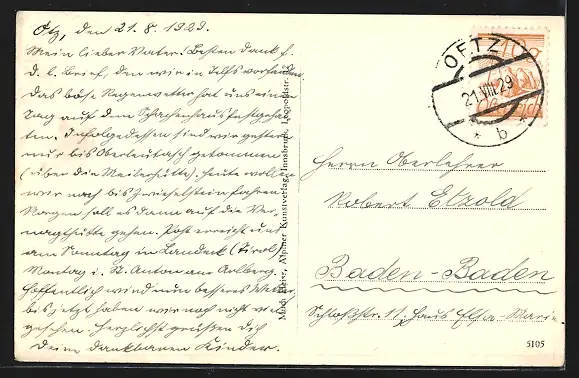 Ötz, den 21.8.1929.
Mein lieber Vater! Besten Dank f.
d. l. Brief, den wir in Telfs vorfanden.
Das böse Regenwetter hat uns einen
Tag auf dem Schachenhaus festgehal-
ten. Infolgedessen sind wir gestern
nur bis Oberleutasch gekommen
(über die Meilerhütte). Heute wollen
wir noch bis Zwieselstein fahren.
Morgen soll es dann auf die Ver-
nagthütte gehen. Post erreicht uns
am Sonntag in Landeck (Tirol),
Montag i. St. Anton am Arlberg.
Hoffentlich wird nun besseres Wetter,
bis jetzt haben wir noch nicht viel
gesehen. Herzlichst grüßen Dich
Deine dankbaren Kinder.
Much Heiss, Alpiner Kunstverlag, Innsbruck, Leopoldstr.
OETZ
21.VIII.29
* b *
Herrn Oberlehrer
Robert Etzold
Baden-Baden
Schloßstr. 11, Haus Elsa-Maria
5105